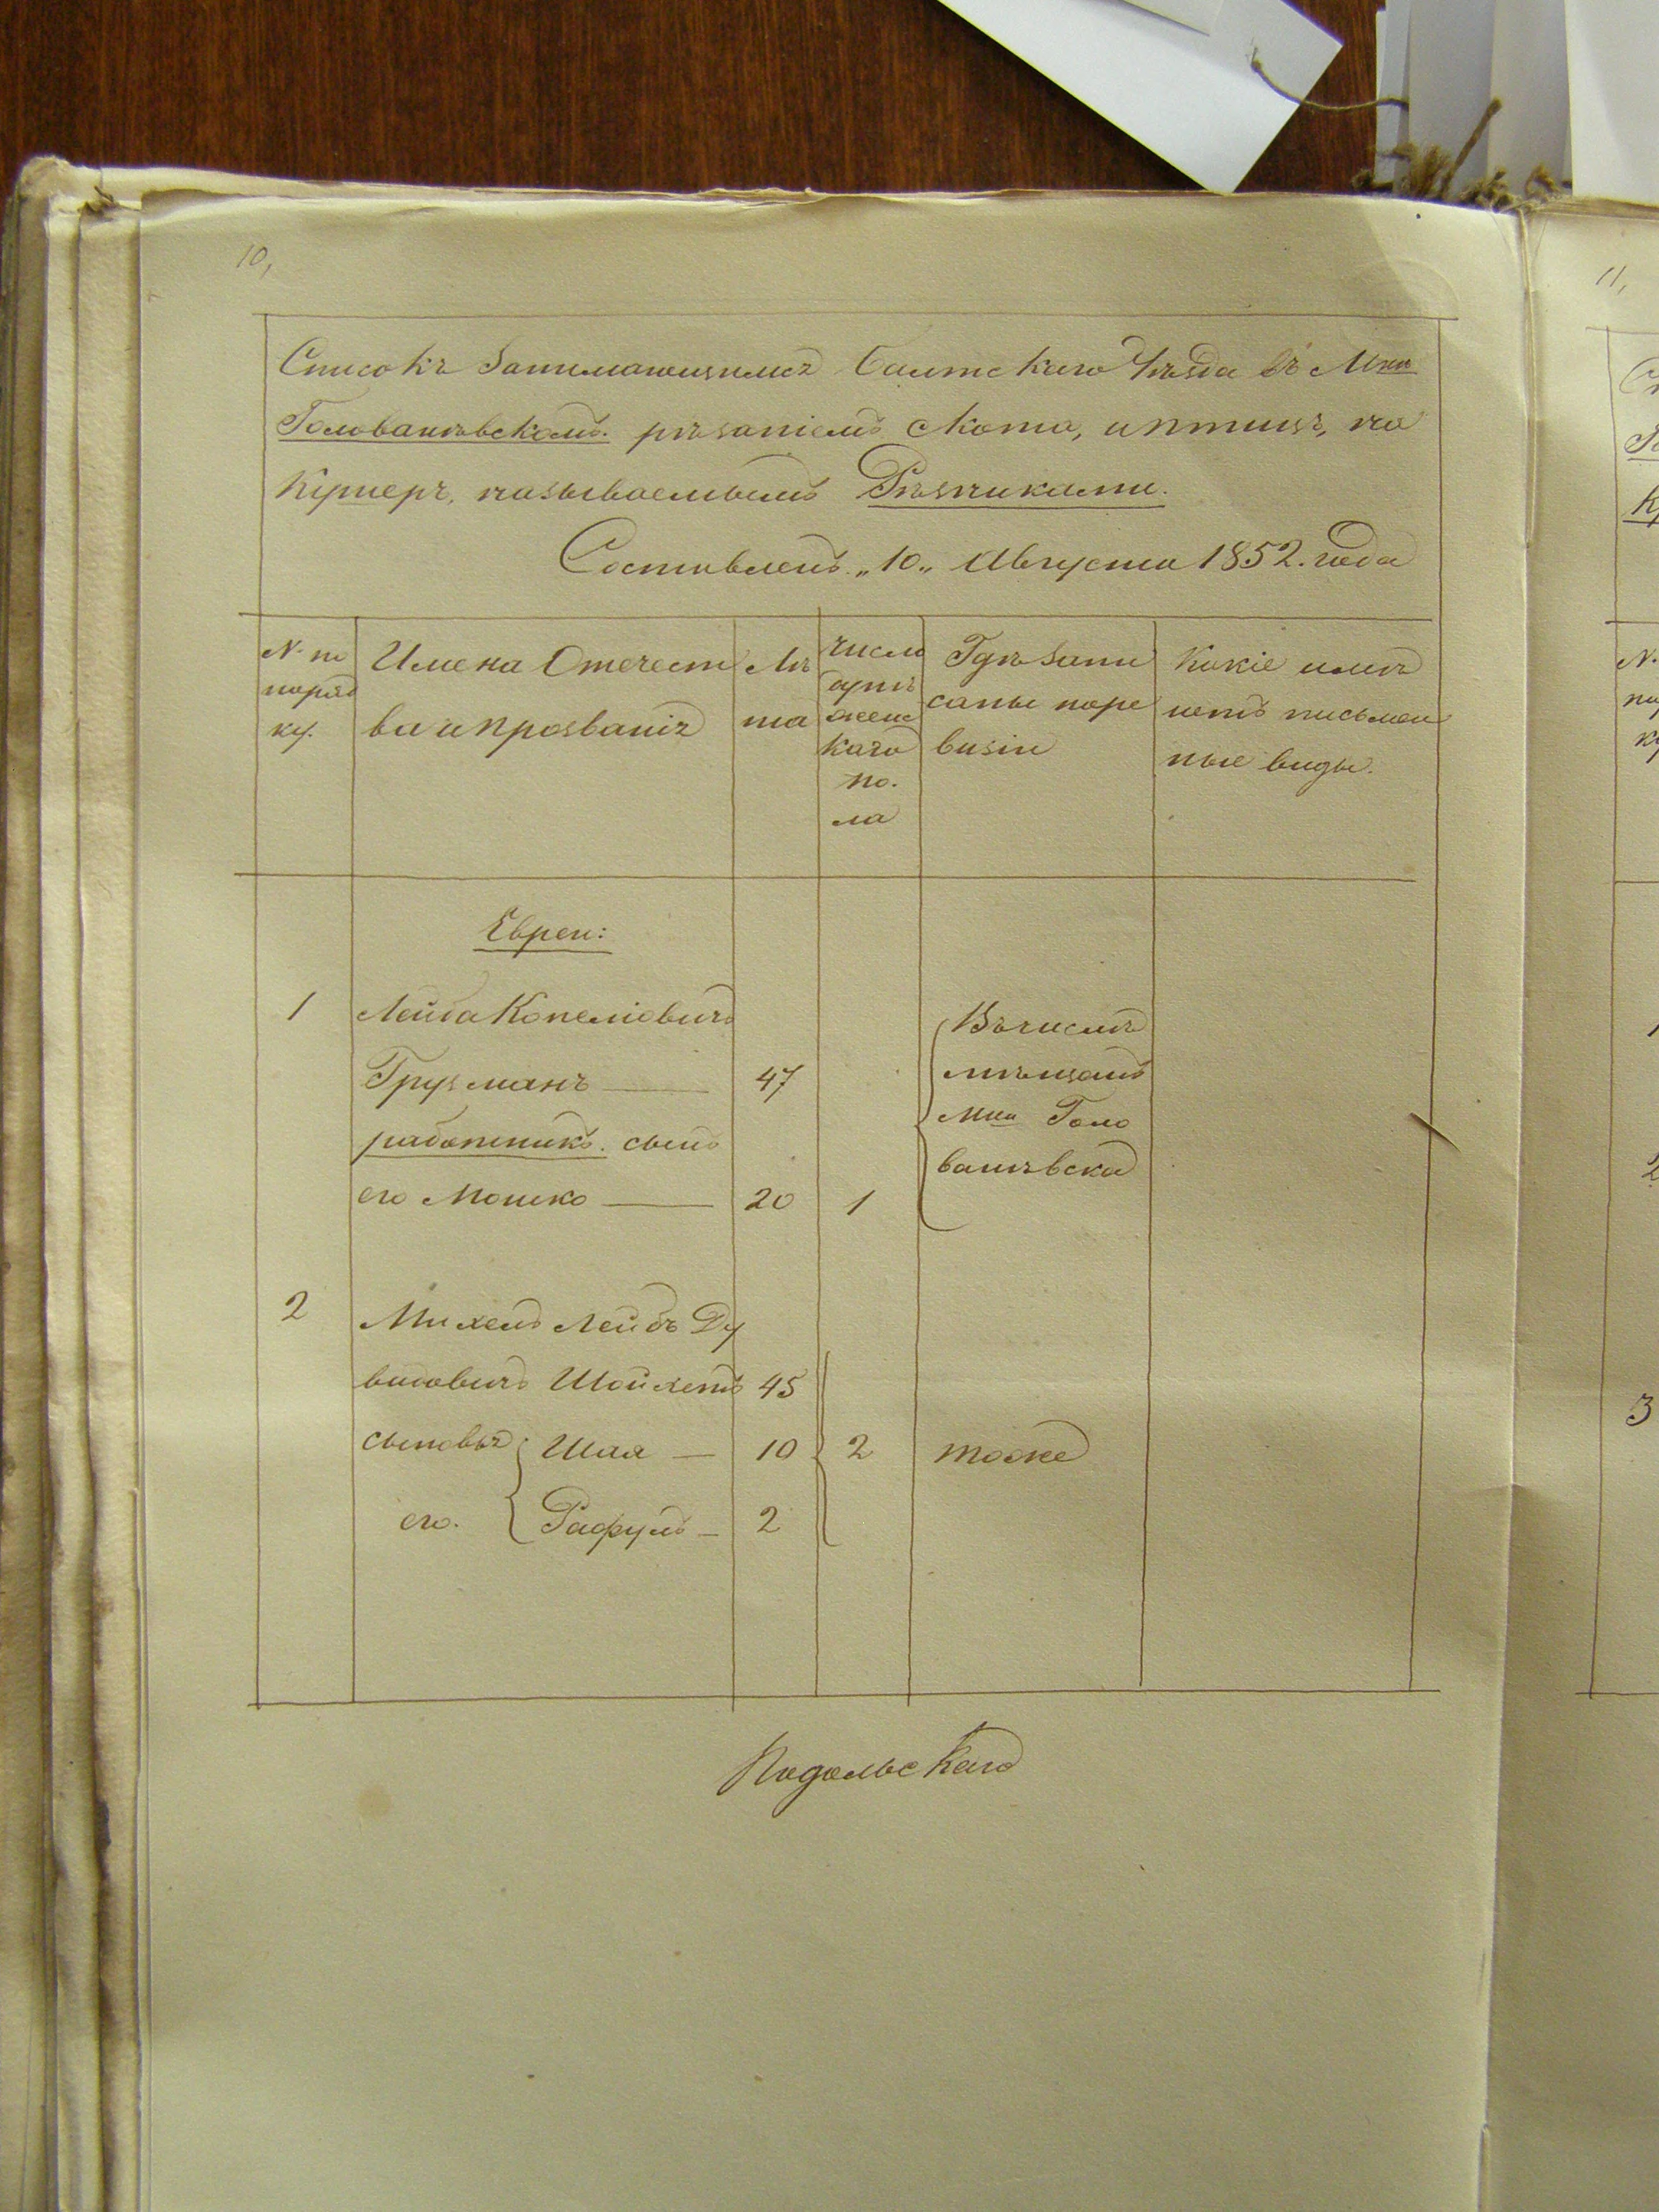 10,
11,
Списокъ Занимающимся Балтскаго Уѣзда въ Мѣи
Голованѣвскомъ. рѣзаніемъ скота, и птицъ, на
Кушеръ, называемымъ Рѣзниками.
Составленъ „10„ Августа 1852. года
№ по
поряд
ку.
Имена Отечест
ва и прозванія
Лѣ
та
Число
душъ
женс
каго
по.
ла
Гдѣ запи
саны по ре
визіи
Какіе имѣ
ютъ письмен
ные виды.
Евреи:
1
Лейба Копеліовичъ
Грузманъ — 47
работникъ. сынъ
его Мошко — 20 1
Въ числѣ
мѣщанъ
Мѣи Голо
ванѣвска
2
Михель Лейбъ Ду
видовичъ Шойхетъ 45
сыновья Шая — 10 2 тоже
его. Рафуль — 2
Подольскаго
N.
ку
3